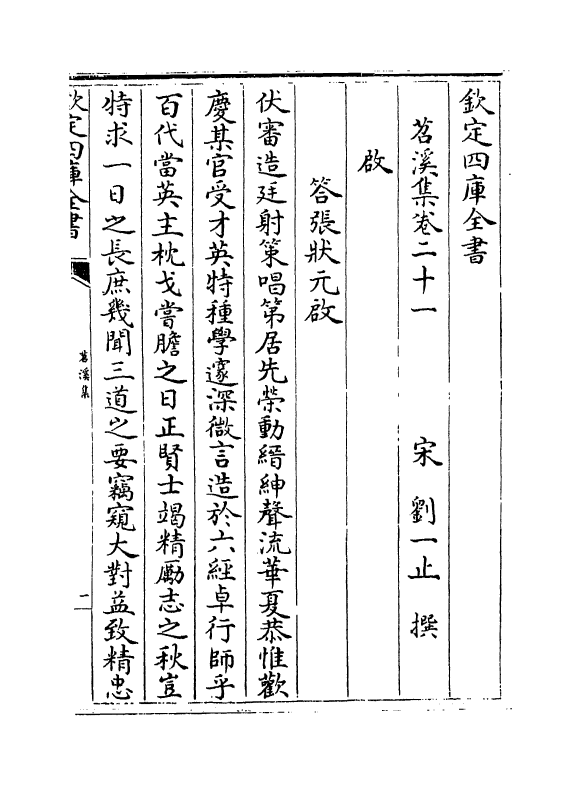 欽定四庫全書
苕溪集卷二十一　宋　劉一止　撰
啟
答張狀元啟
伏審造廷射策唱第居先榮動縉紳聲流華夏恭惟歡
慶某官受才英特種學邃深微言造於六經卓行師乎
百代當英主枕戈嘗膽之日正賢士竭精勵志之秋豈
特求一日之長庶幾聞三道之要竊窺大對益致精忠
欽定四庫全書
苕溪集
一